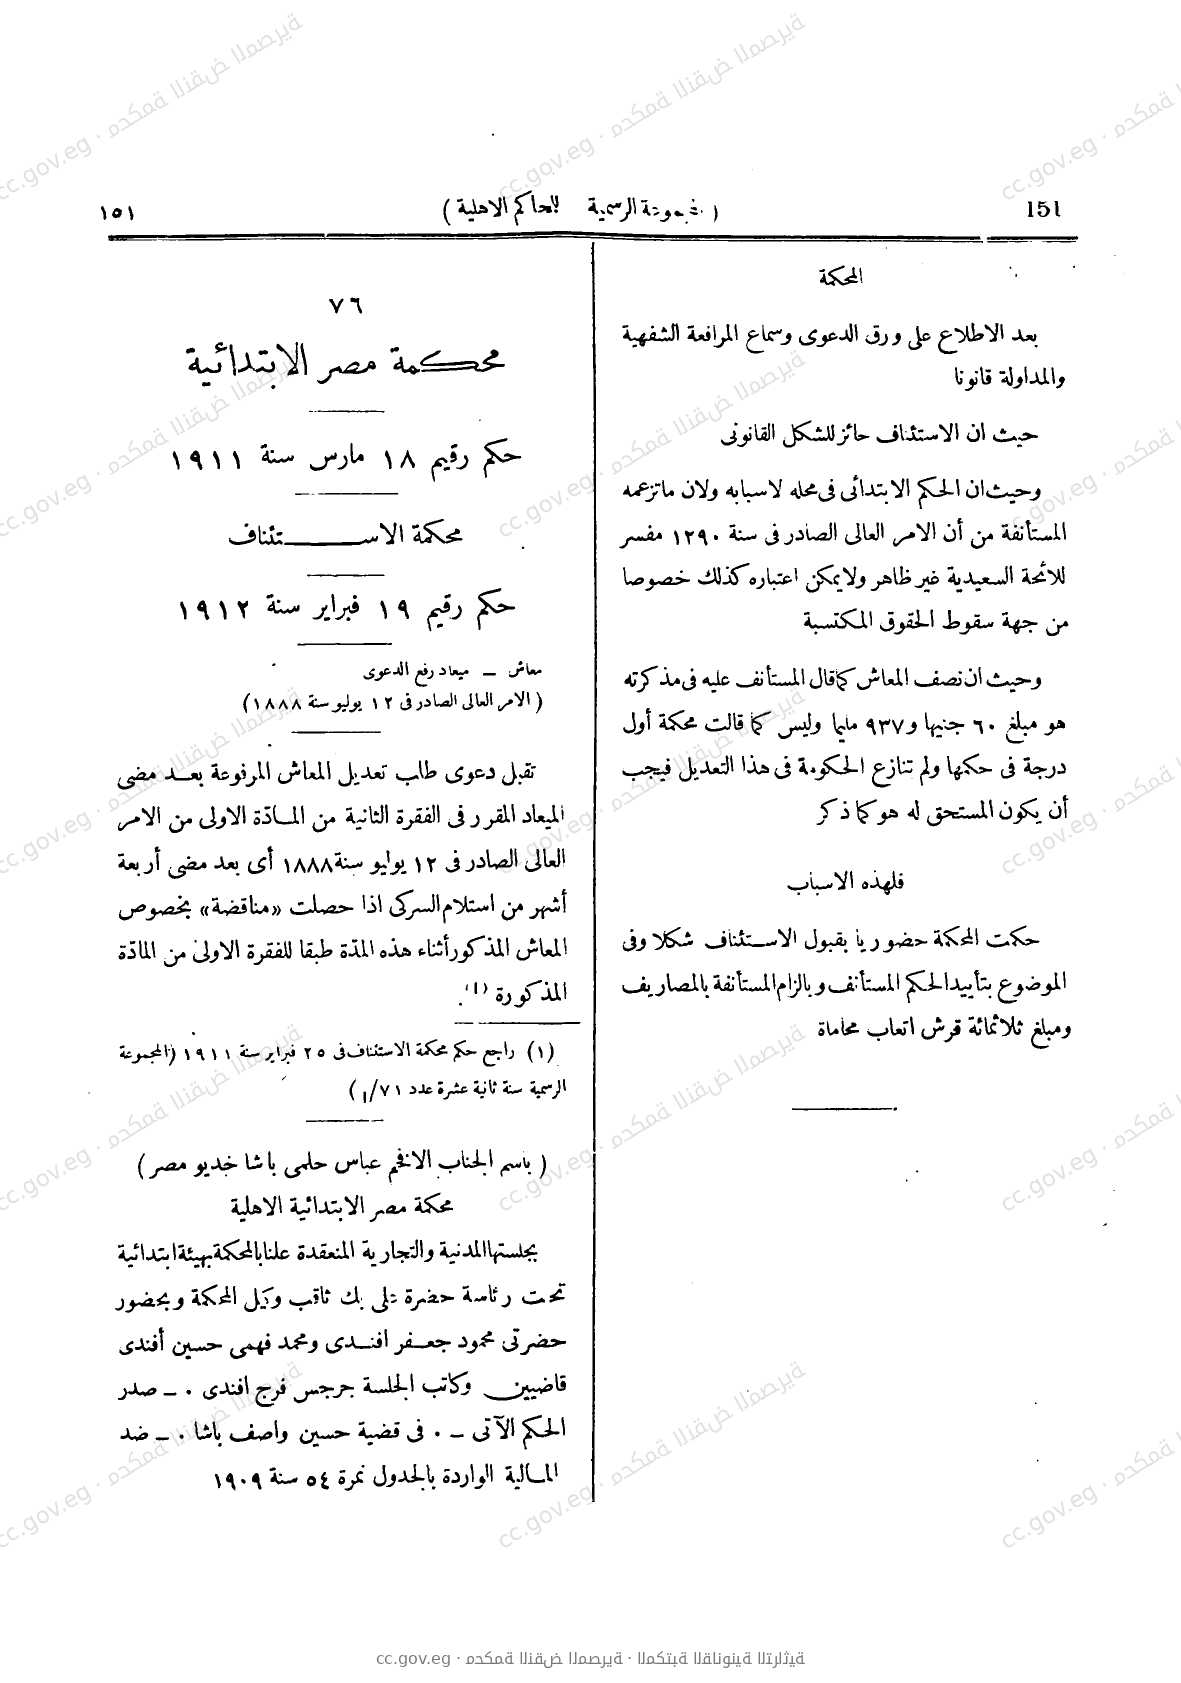 151
(المجموعة الرسمية للمحاكم الاهلية)
١٥١
المحكمة
بعد الاطلاع على ورق الدعوى وسماع المرافعة الشفهية
والمداولة قانونا
حيث ان الاستئناف حائز للشكل القانونى
وحيث ان الحكم الابتدائى فى محله لاسبابه ولان ماتزعمه
المستأنفة من أن الامر العالى الصادر فى سنة ١٢٩٠ مفسر
للائحة السعيدية غير ظاهر ولايمكن اعتباره كذلك خصوصا
من جهة سقوط الحقوق المكتسبة
وحيث ان نصف المعاش كما قال المستأنف عليه فى مذكرته
هو مبلغ ٦٠ جنيها و٩٣٧ مليما وليس كما قالت محكمة أول
درجة فى حكمها ولم تنازع الحكومة فى هذا التعديل فيجب
أن يكون المستحق له هو كما ذكر
فلهذه الاسباب
حكمت المحكمة حضوريا بقبول الاستئناف شكلا وفى
الموضوع بتأييد الحكم المستأنف وبالزام المستأنفة بالمصاريف
ومبلغ ثلاثمائة قرش اتعاب محاماة
٧٦
محكمة مصر الابتدائية
حكم رقيم ١٨ مارس سنة ١٩١١
محكمة الاستئناف
حكم رقيم ١٩ فبراير سنة ١٩١٢
معاش — ميعاد رفع الدعوى
(الامر العالى الصادر فى ١٢ يوليو سنة ١٨٨٨)
تقبل دعوى طلب تعديل المعاش المرفوعة بعد مضى
الميعاد المقرر فى الفقرة الثانية من المادّة الاولى من الامر
العالى الصادر فى ١٢ يوليو سنة ١٨٨٨ أى بعد مضى أربعة
أشهر من استلام السركى اذا حصلت «مناقضة» بخصوص
المعاش المذكور أثناء هذه المدّة طبقا للفقرة الاولى من المادّة
المذكورة (١).
(١) راجع حكم محكمة الاستئناف فى ٢٥ فبراير سنة ١٩١١ (المجموعة
الرسمية سنة ثانية عشرة عدد ٧١/١)
(باسم الجناب الافخم عباس حلمى باشا خديو مصر)
محكمة مصر الابتدائية الاهلية
بجلستها المدنية والتجارية المنعقدة علنا بالمحكمة بهيئة ابتدائية
تحت رئاسة حضرة على بك ثاقب وكيل المحكمة وبحضور
حضرتى محمود جعفر افندى ومحمد فهمى حسين أفندى
قاضيين وكاتب الجلسة جرجس فرج افندى . — صدر
الحكم الآتى — . فى قضية حسين واصف باشا . — ضد
المالية الواردة بالجدول نمرة ٥٤ سنة ١٩٠٩
cc.gov.eg · محكمة النقض المصرية · المكتبة القانونية التراثية